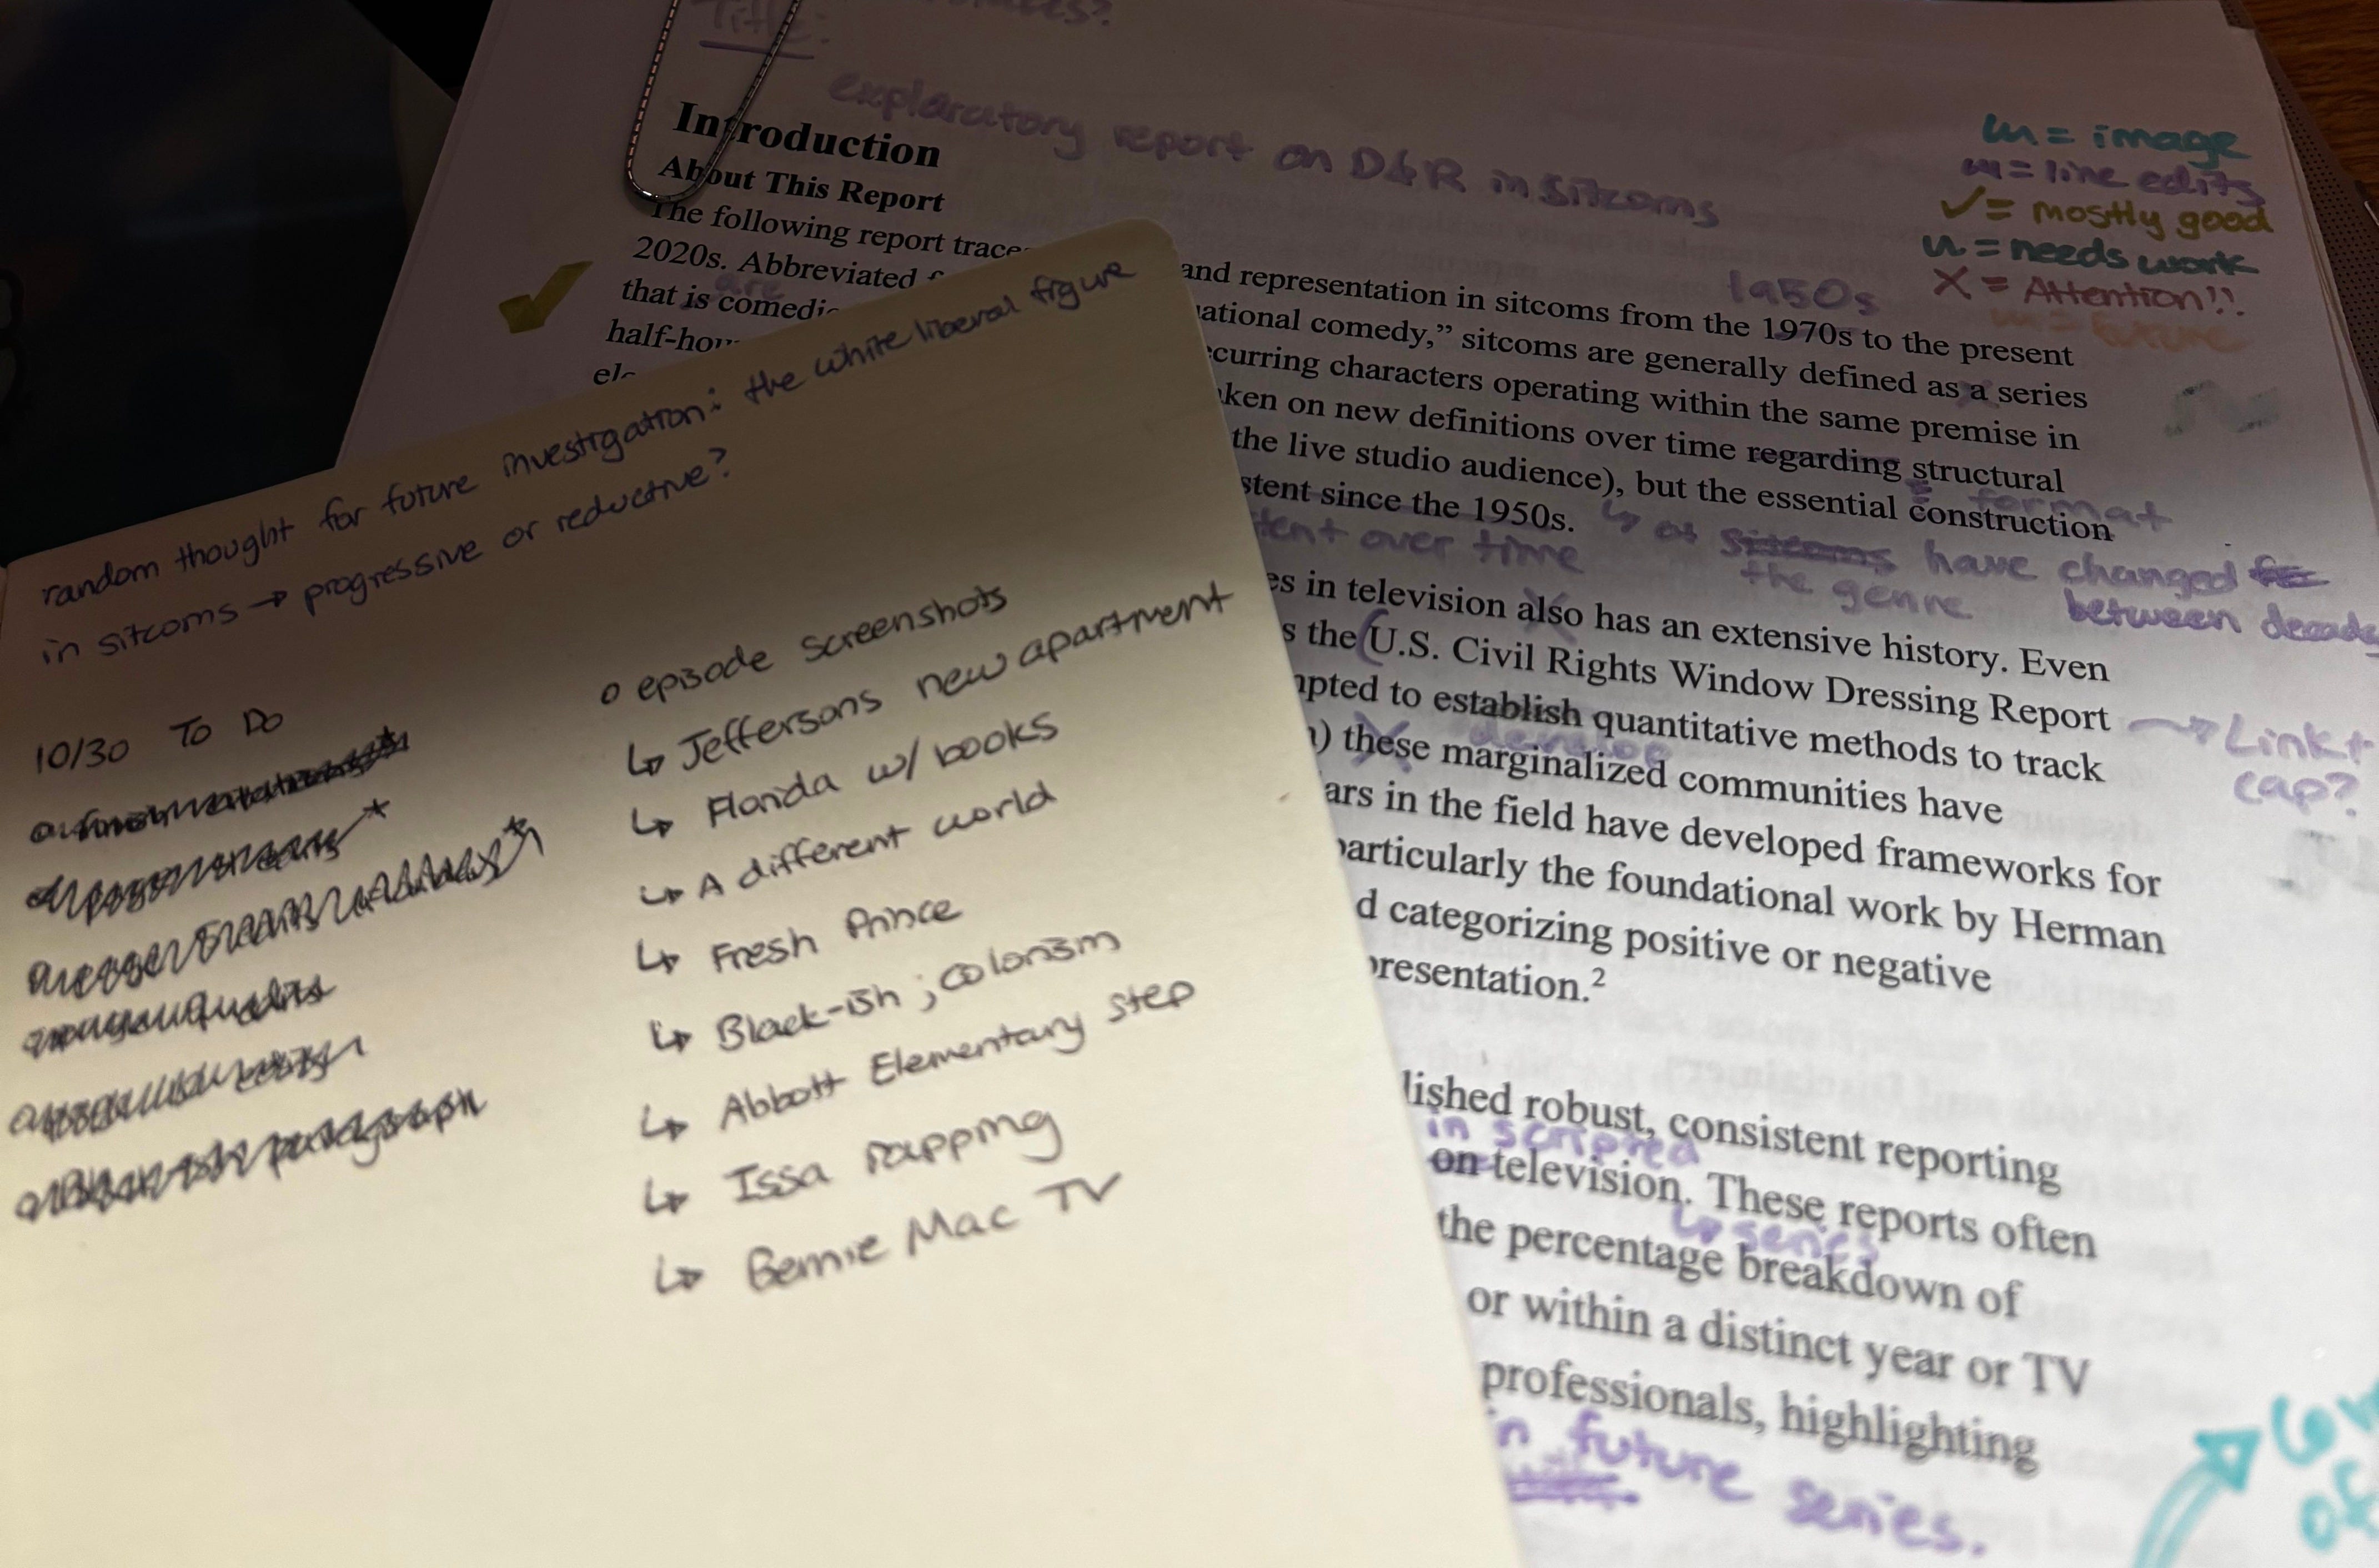 Title:
exploratory report on D&R in Sitcoms
= image
= line edits
✓ = mostly good
= needs work
X = Attention!!
= future
Introduction
About This Report
The following report and representation in sitcoms from the 1970s to the present
1950s
2020s. Abbreviated ational comedy,” sitcoms are generally defined as a series
are
that is comedic curring characters operating within the same premise in
half-hour ken on new definitions over time regarding structural
the live studio audience), but the essential construction
format
stent since the 1950s.
tent over time
↳ of sitcoms have changed
the genre between decade
es in television also has an extensive history. Even
s the U.S. Civil Rights Window Dressing Report
→ Link +
cap?
mpted to establish quantitative methods to track
develop
) these marginalized communities have
ars in the field have developed frameworks for
particularly the foundational work by Herman
d categorizing positive or negative
presentation.²
lished robust, consistent reporting
in scripted
on television. These reports often
↳ series
the percentage breakdown of
or within a distinct year or TV
professionals, highlighting
in future series.
random thought for future investigation: the white liberal figure
in sitcoms → progressive or reductive?
10/30 To Do
paragraph
o episode screenshots
↳ Jeffersons new apartment
↳ Florida w/ books
↳ A different world
↳ Fresh Prince
↳ Black-ish ; colorism
↳ Abbott Elementary step
↳ Issa rapping
↳ Bernie Mac TV